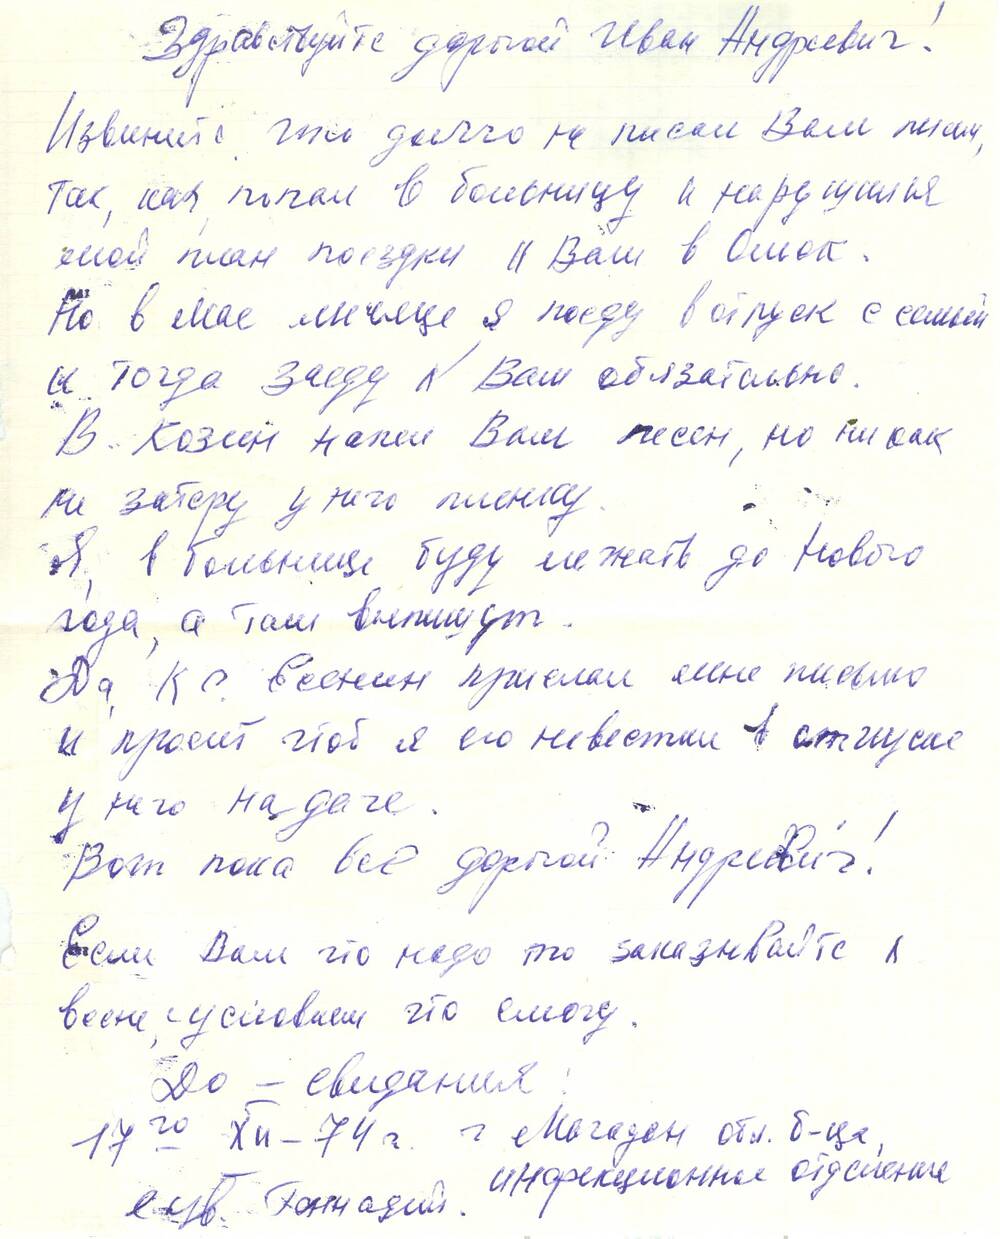 Здравствуйте дорогой Иван Андреевич!
Извините, что долго не писал Вам писем,
так, как, попал в больницу и нарушился
мой план поездки к Вам в Омск.
Но в мае месяце я поеду в отпуск с семьей
и тогда заеду к Вам обязательно.
В. Козин напел Вам песен, но никак
не заберу у него пленку.
Я, в больнице буду лежать до Нового
года, а там выпишут.
Да, К С. Есенин прислал мне письмо
и просит чтоб я его навестил в отпуске
у него на даче.
Вот пока всё дорогой Андреевич!
Если Вам что надо то заказывайте к
весне, с условием что смогу.
До – свидания!
17го XII – 74 г. г Магадан обл. б-ца,
инфекционное отделение
Геннадий.